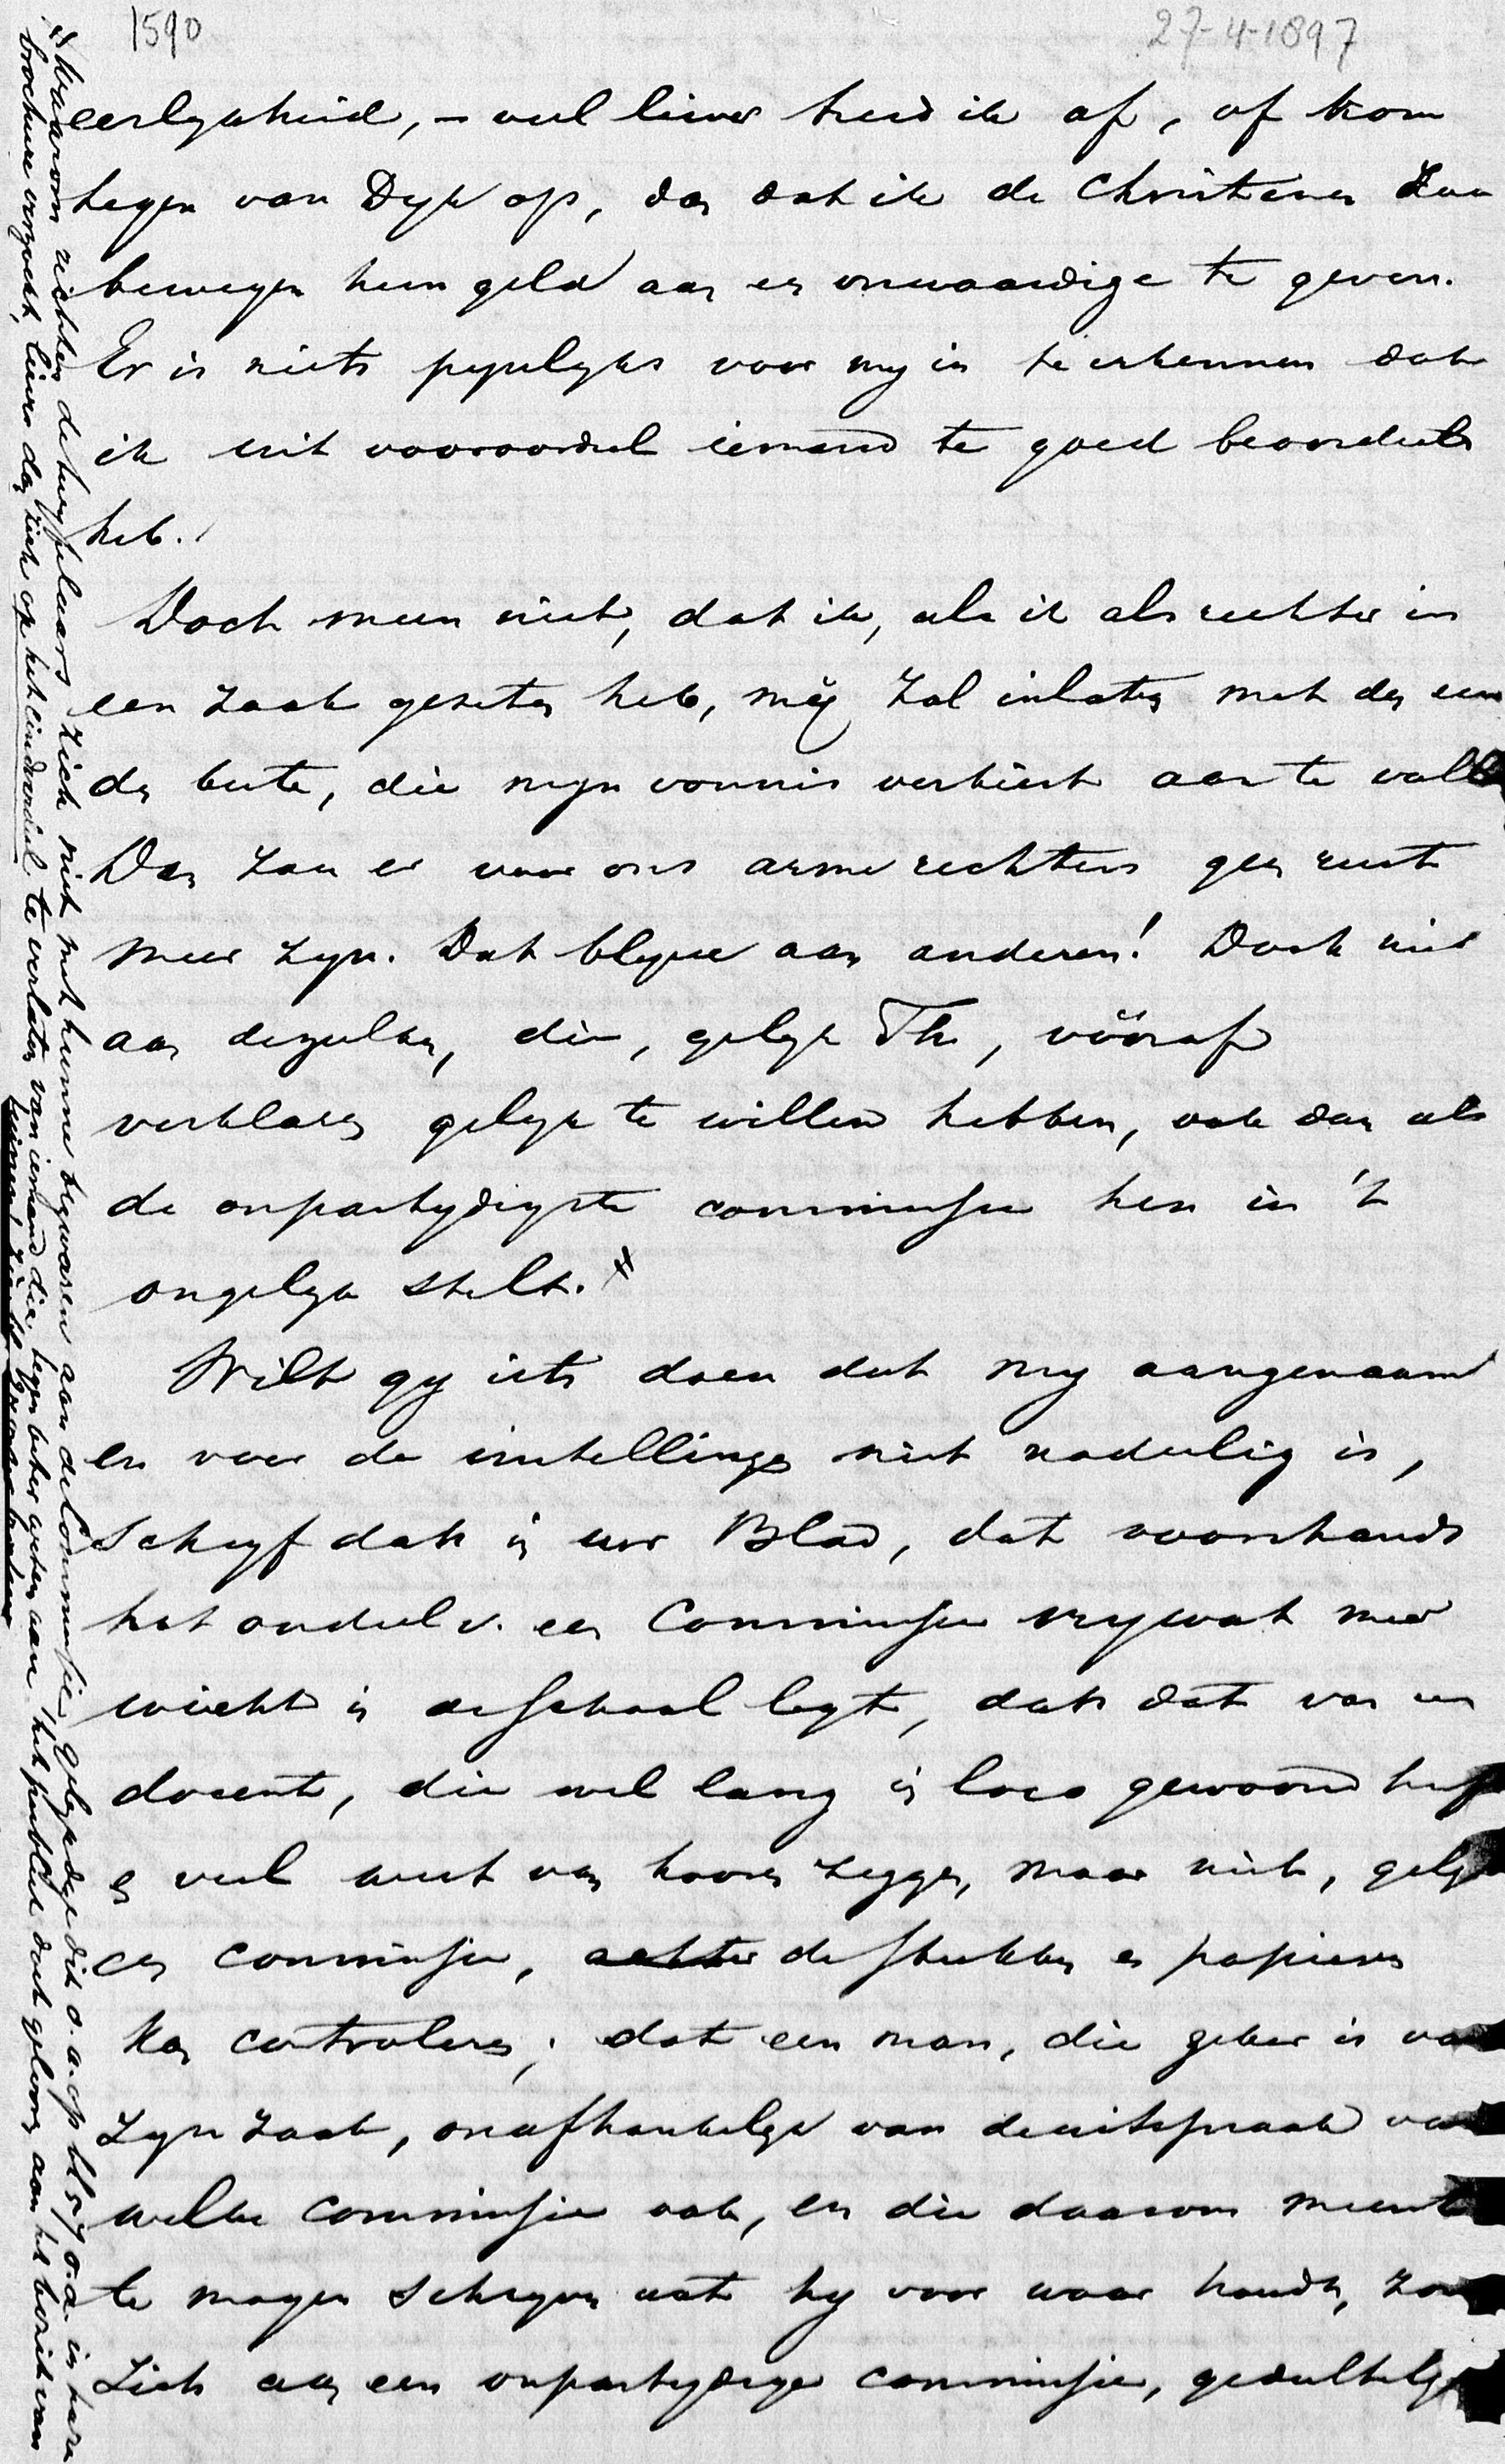 1590
27-4-1897
eerlykheid, – veel liever treed ik af, of kom
tegen van Dyk op, dan dat ik de Christenen zou
bewegen hun geld aan een onwaardige te geven.
Er is niets pynlyks voor my in te erkennen dat
ik uit vooroordeel iemand te goed beoordeeld
heb.
Doch meen niet, dat ik, als ik als rechter in
een zaak gezeten heb, my zal inlaten met den een
die mijn vonnis verkiest aan te vallen
Dan zou er voor ons arme rechters geen rust
meer zyn. Dat blyve aan anderen! Doch niet
aan dezulken, die, gelyk Th, vóóraf
verklaren gelyk te willen hebben, ook dan als
de onpartydigste commissie hen in 't
ongelyk stelt. x
Wilt gy iets doen dat my aangenaam
en voor de instelling niet nadeelig is,
schryf dat in uw Blad, dat voorshands
het oordeel v. een Commissie vrywat meer
gewicht in de schaal legt, dan dat van een
docent, die wel lang in loco gewoond heeft
en veel weet van hooren zeggen, maar niet, gelyk
een commissie, achter de stukken en papieren
kan controleren; dat een man, die zeker is van
zyn zaak, onafhankelyk van de uitspraak van
welke commissie ook, en die daarom meent
te mogen schryven wat hy voor waar houdt,
zich aan een onpartydige commissie,
x Waarom richten de twyfelaars zich niet met hunne bezwaren aan de Commissie, gelyk deze dit o.a. op bl 57 o.a. in hare
brochure verzoekt, liever dan zich op het eindoordeel te verlaten van iemand die, tegen beter weten aan, het publiek doet gelooven aan het bericht van